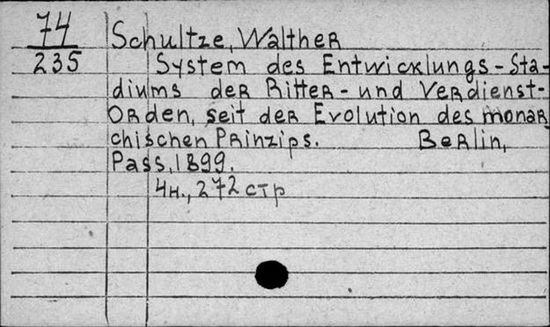 74
235
Schultze, Walther
System des Entwicklungs-Sta-
diums der Ritter- und Verdienst-
Orden, seit der Evolution des monar
chischen Prinzips. Berlin,
Pass, 1899.
4н., 272 стр